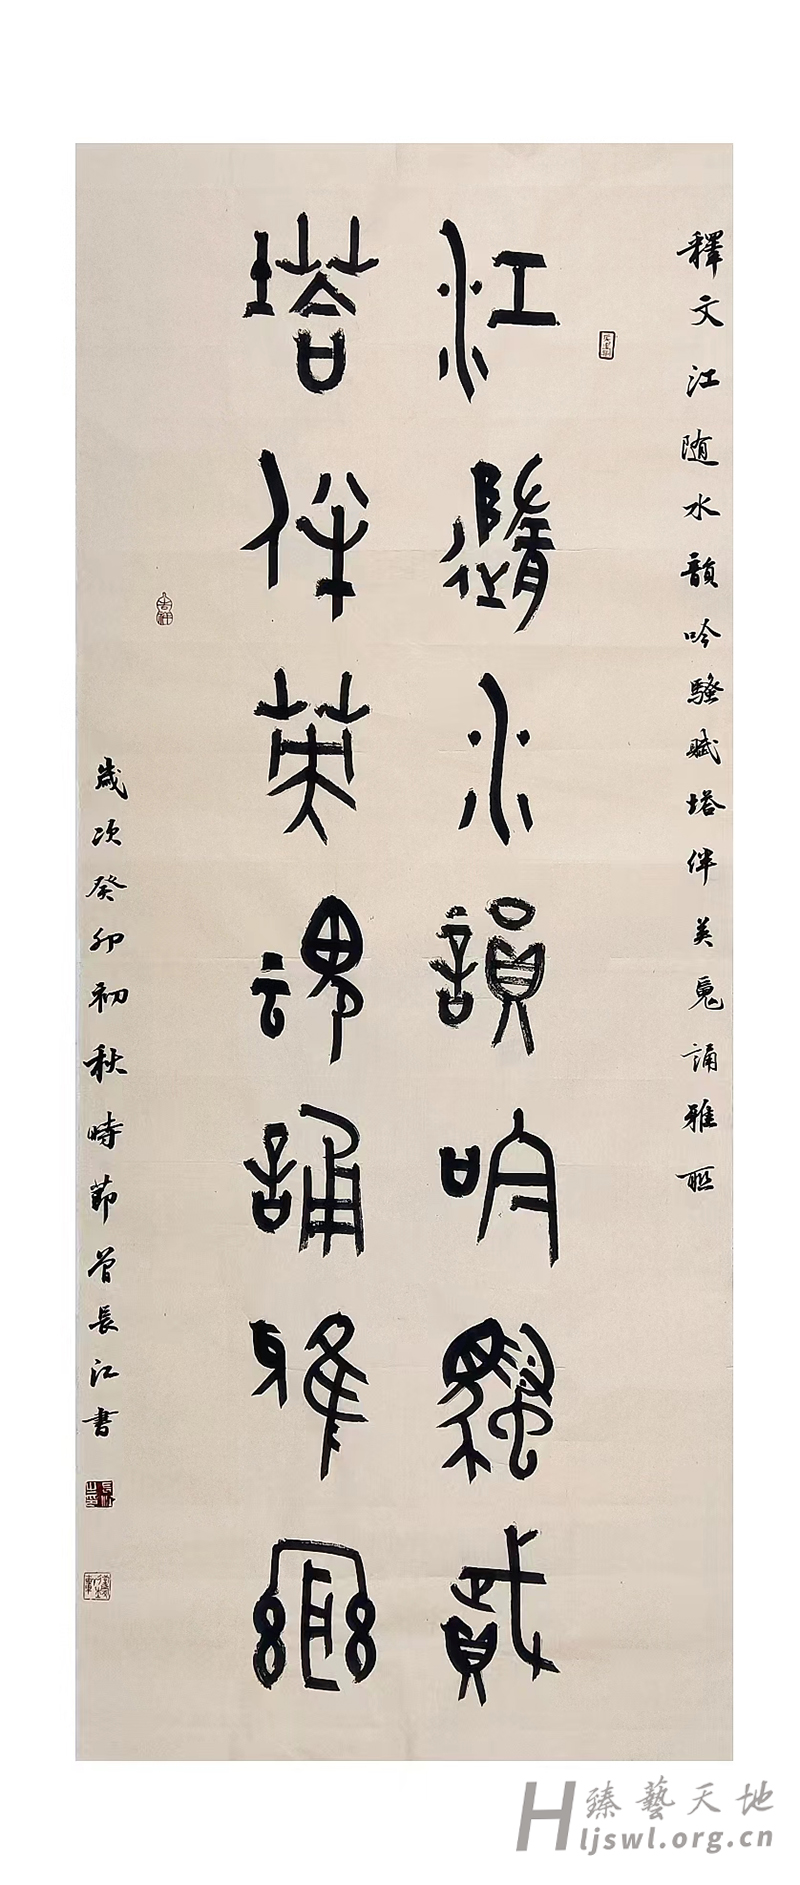 釋文江随水韻吟騷賦塔伴英魂誦雅聯
江隨水韻吟騷賦
塔伴英魂誦雅聯
歲次癸卯初秋時節曾長江書
吉祥
臻藝天地
Hljswl.org.cn